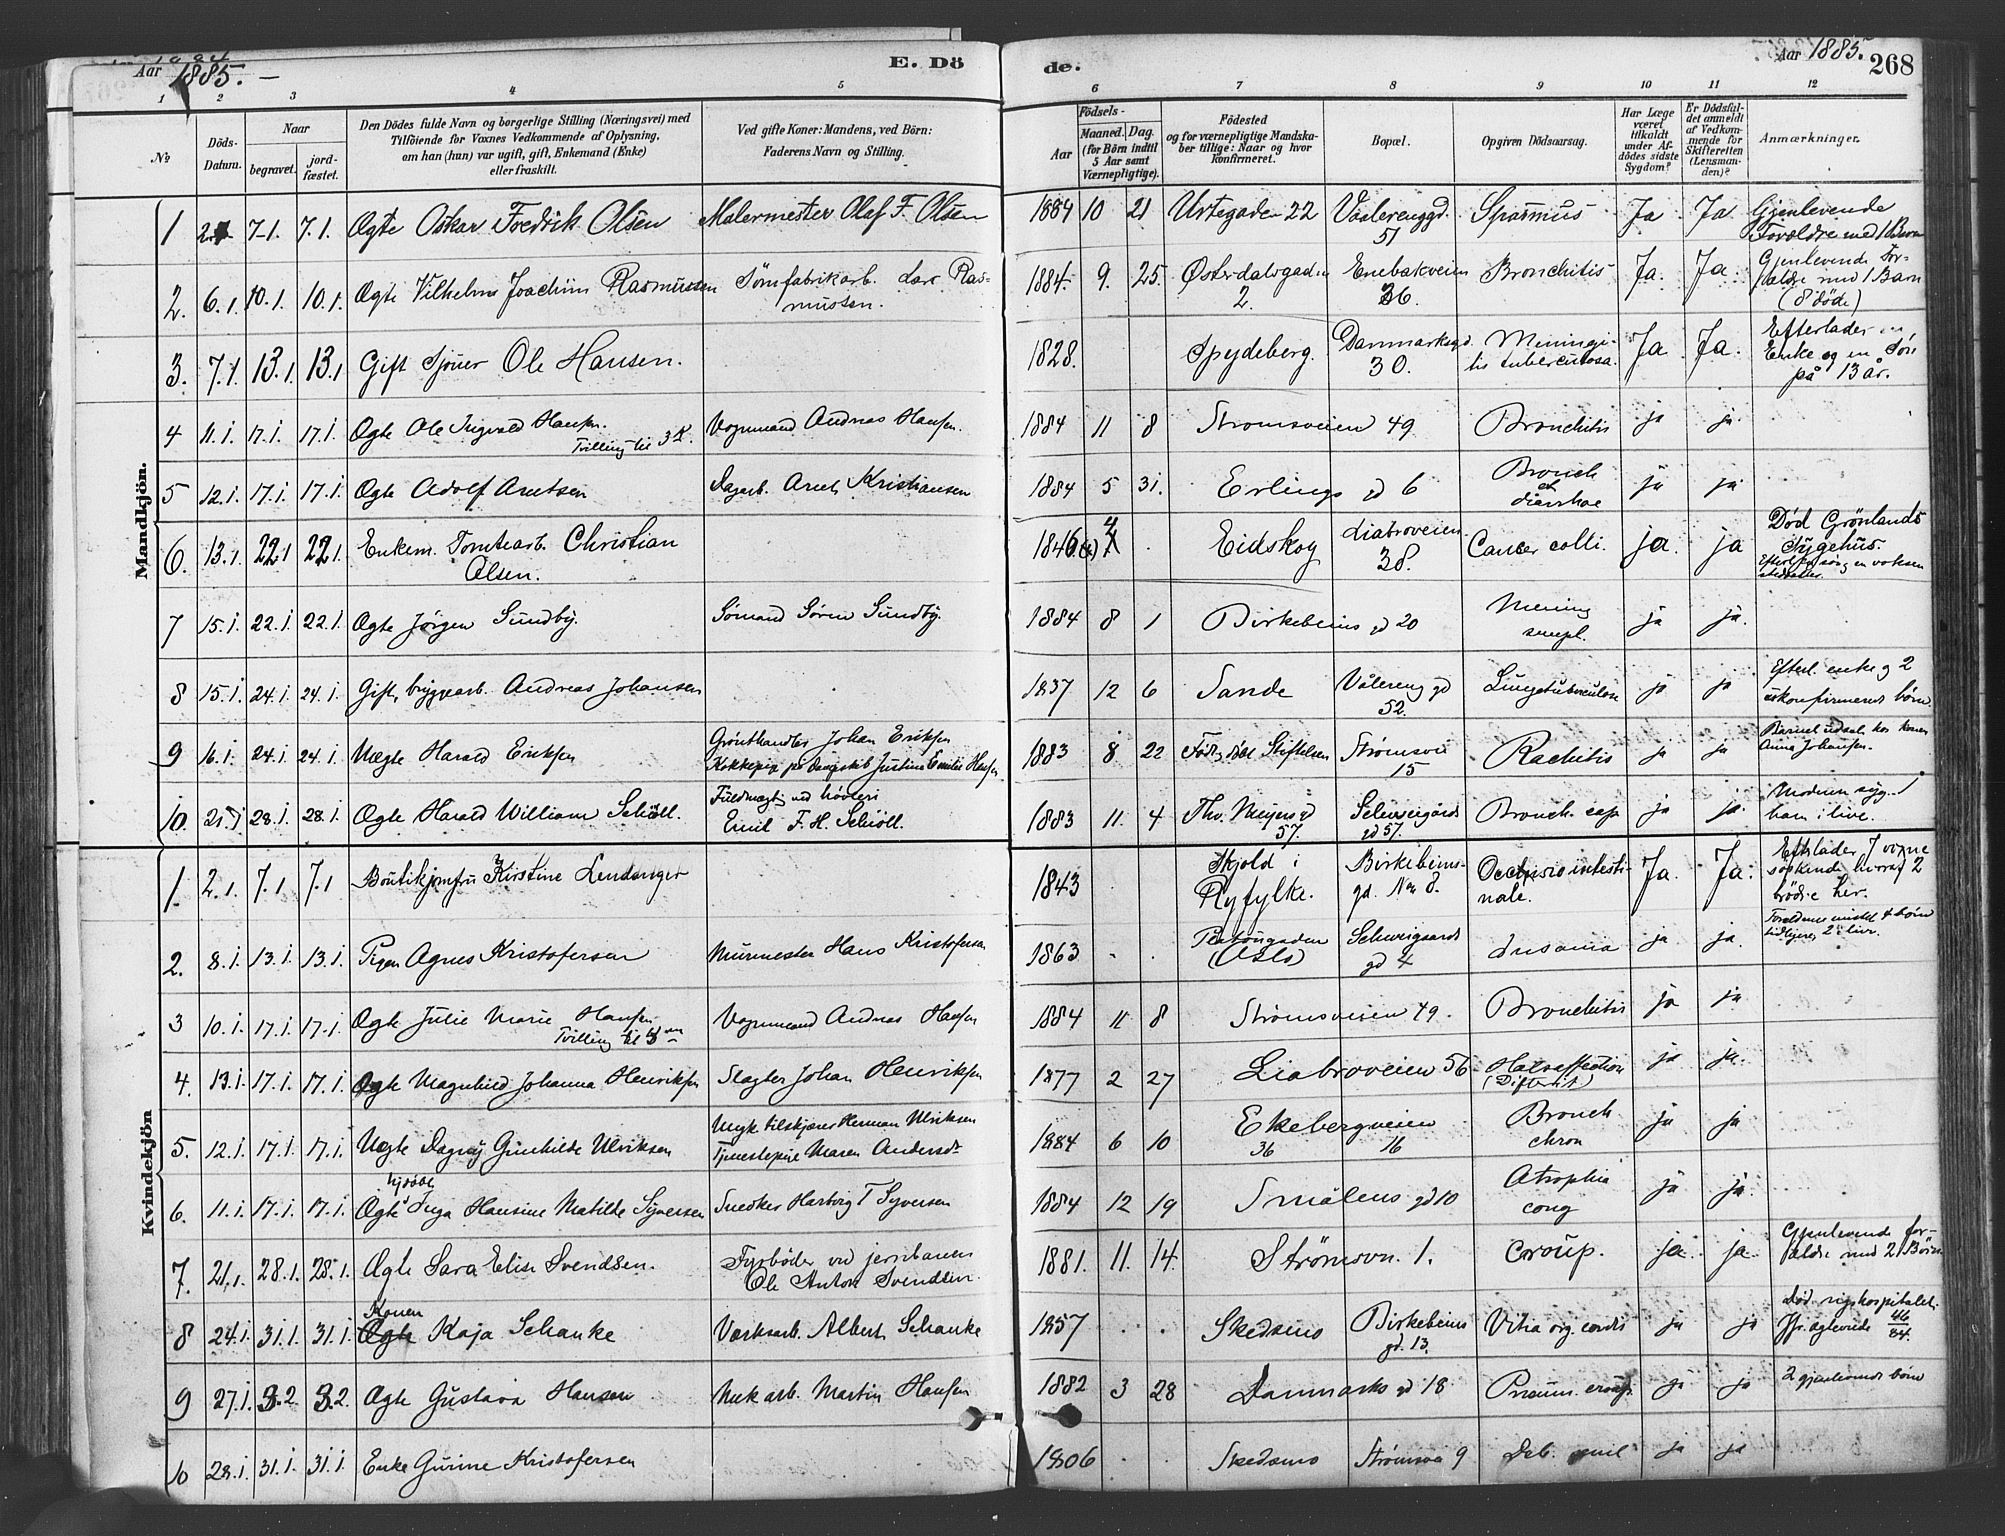 Aar 1885. —
E. Döde.
Aar 1885.
268
1 2 3 4 5 6 7 8 9 10 11 12
№
Döds-Datum.
Naar
begravet.
jord-fæstet.
Den Dödes fulde Navn og borgerlige Stilling (Næringsvei) med
Tilföiende for Voxnes Vedkommende af Oplysning,
om han (hun) var ugift, gift, Enkemand (Enke)
eller fraskilt.
Ved gifte Koner: Mandens, ved Börn:
Faderens Navn og Stilling.
Födsels-
Aar
Maaned. Dag.
(for Börn indtil
5 Aar samt
Værnepligtige).
Födested
og for værnepligtige Mandska-
ber tillige: Naar og hvor
konfirmeret.
Bopæl.
Opgiven Dödsaarsag.
Har Læge
været
tilkaldt
under Af-
dödes sidste
Sygdom?
Er Dödsfal-
det anmeldt
af Vedkom-
mende for
Skifteretten
(Lensman-
den)?
Anmærkninger.
Mandkjön.
1 7.1. 7.1. Ægte Oskar Fredrik Olsen Malermester Olaf F. Olsen 1884 10 21 Urtegaden 22 Vaalerenggd. 51 Spasmus Ja Ja Gjenlevende Forældre med 1 Barn
2. 6.1. 10.1. 10.1. Ægte Vilhelm Joachim Rasmussen Sömfabrikarb. Lars Rasmussen. 1884 9. 25. Østerdalsgaden 2. Enebakveien 36. Bronchitis Ja. Ja Gjenlevende Forældre med 1 Barn (8 döde)
3. 7.1. 13.1. 13.1 Gift Sjöuer Ole Hansen. 1828. Spydeberg. Danmarksgd. 30. Meningitis tuberculosa. Ja Ja. Efterlader en Enke og en Sön på 13 år.
4 11.1. 17.1. 17.1 Ægte Ole Ingvald Hansen. Tvilling til 3 K. Vognmand Andreas Hansen. 1884 11 8 Strømsveien 49 Bronchitis ja ja.
5 12.1. 17.1. 17.1. Ægte Adolf Arntsen Dagarb. Arnt Kristiansen 1884 5 31. Erlings gd 6 Bronch et diarrhoe ja ja
6. 13.1. 22.1 22.1. Enkem. Tomtearb. Christian Olsen. 1846 Eidskog Liabroveien 38. Cancer colli. ja. ja Död Grönlands Sygehus.
7 15.1. 22.1. 22.1. Ægte Jörgen Sundby. Sømand Søren Sundby. 1884 8 1 Birkebeins gd 20 Mening simpl. ja ja.
8 15.1. 24.1. 24.1. Gift, bryggearb. Andreas Johansen 1837 12 6 Sande Vålereng gd 52. Lungetuberculose ja ja Efterl. enke og 2 ukonfirmerede børn.
9 16.1. 24.1. 24.1. Uægte Harald Eriksen Grønthandler Johan Eriksen Kokkepige på dampskib Justine Emilie Hansen 1883 8 22 Føds. Stiftelsen Strømsvei 15 Rachitis ja ja Barnet udsat hos konen Anna Johansen.
10. 21.1 28.1. 28.1. Ægte Harald William Schöll. Fuldmægtig ved høvleri Emil F. H. Schöll. 1883 11. 4 Th. Meyers gd 57. Schweigårds gd 57. Bronch. cap ja ja. Moderen syg. 1 barn i live.
Kvindekjön
1. 2.1. 7.1 7.1 Boutikjomfru Kirstine Lendanger 1843 Skjold i Ryfylke. Birkebeinsgd. No 8. Occlusio intestinale. Ja. Ja. Efterlader 7 voxne söskende hvoraf 2 brödre her.
2. 8.1. 13.1. 13.1. Pigen Agnes Kristofersen Murmester Hans Kristofersen 1863 . . (Oslo) Schweigaards gd 4 Insania ja ja. Forældrene mistet 4 børn tidligere, 2 i live.
3 10.1. 17.1. 17.1. Ægte Julie Marie Hansen Tvilling til 4 m Vognmand Andreas Hansen 1884 11 8 Strømsveien 49. Bronchitis ja ja
4. 13.1. 17.1. 17.1. Ægte Magnhild Johanna Henriksen Slagter Johan Henriksen 1877 2 27 Liabroveien 56 Halsaffection (Difterit) ja ja.
5. 12.1. 17.1. 17.1. Uægte Dagny Gunhilde Ulriksen Ungk tilskjærer Herman Ulriksen Tjenestepige Maren Andersdr 1884 6 10 Ekebergveien 36 16 Bronch chron ja ja
6. 11.1. 17.1. 17.1. Ægte hjdøbt Inga Hansine Matilde Syversen Snedker Hartvig T Syversen 1884 12 19 Smålens gd 10 Atrophia cong ja ja.
7. 21.1. 28.1. 28.1. Ægte Sara Elise Svendsen. Fyrböder ved jernbanen Ole Anton Svendsen. 1881. 11. 14. Strömsvn. 1. Croup. ja. ja. Gjenlevende forældre med 2 Börn
8 24.1. 31.1. 31.1. Konen Ægte Kaja Schanke Værksarb. Albert Schanke 1857 . . Skedsmo Birkebeins gd. 13. Vitia org. cordis ja ja Død rigshospitalet. Jfr. ægteviede 46/84.
9 27.1. 3.2. 3.2. Ægte Gustava Hansen Mek arb. Martin Hansen 1882 3 28 Danmarks gd 18 Pneum. croup. ja ja 2 gjenlevende børn
10 28.1. 31.1. 31.1. Enke Gurine Kristofersen 1806 . . Skedsmo Strømsvei 9 Deb. senil ja ja